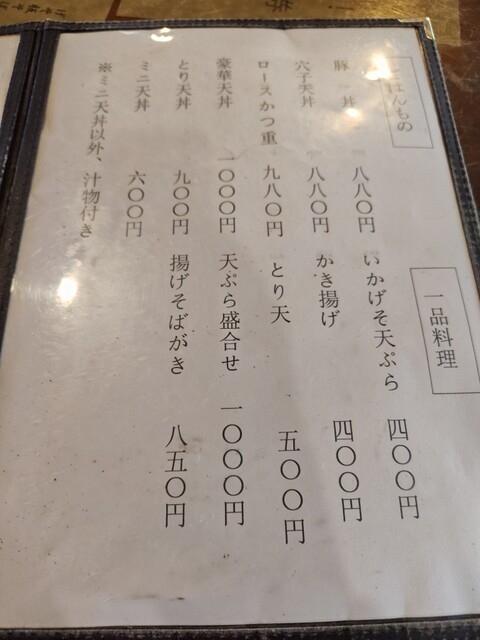 ごはんもの
豚丼 八八〇円
穴子天丼 八八〇円
ロースかつ重 九八〇円
豪華天丼 一〇〇〇円
とり天丼 九〇〇円
ミニ天丼 六〇〇円
※ミニ天丼以外、汁物付き
一品料理
いかげそ天ぷら 四〇〇円
かき揚げ 四〇〇円
とり天 五〇〇円
天ぷら盛合せ 一〇〇〇円
揚げそばがき 八五〇円